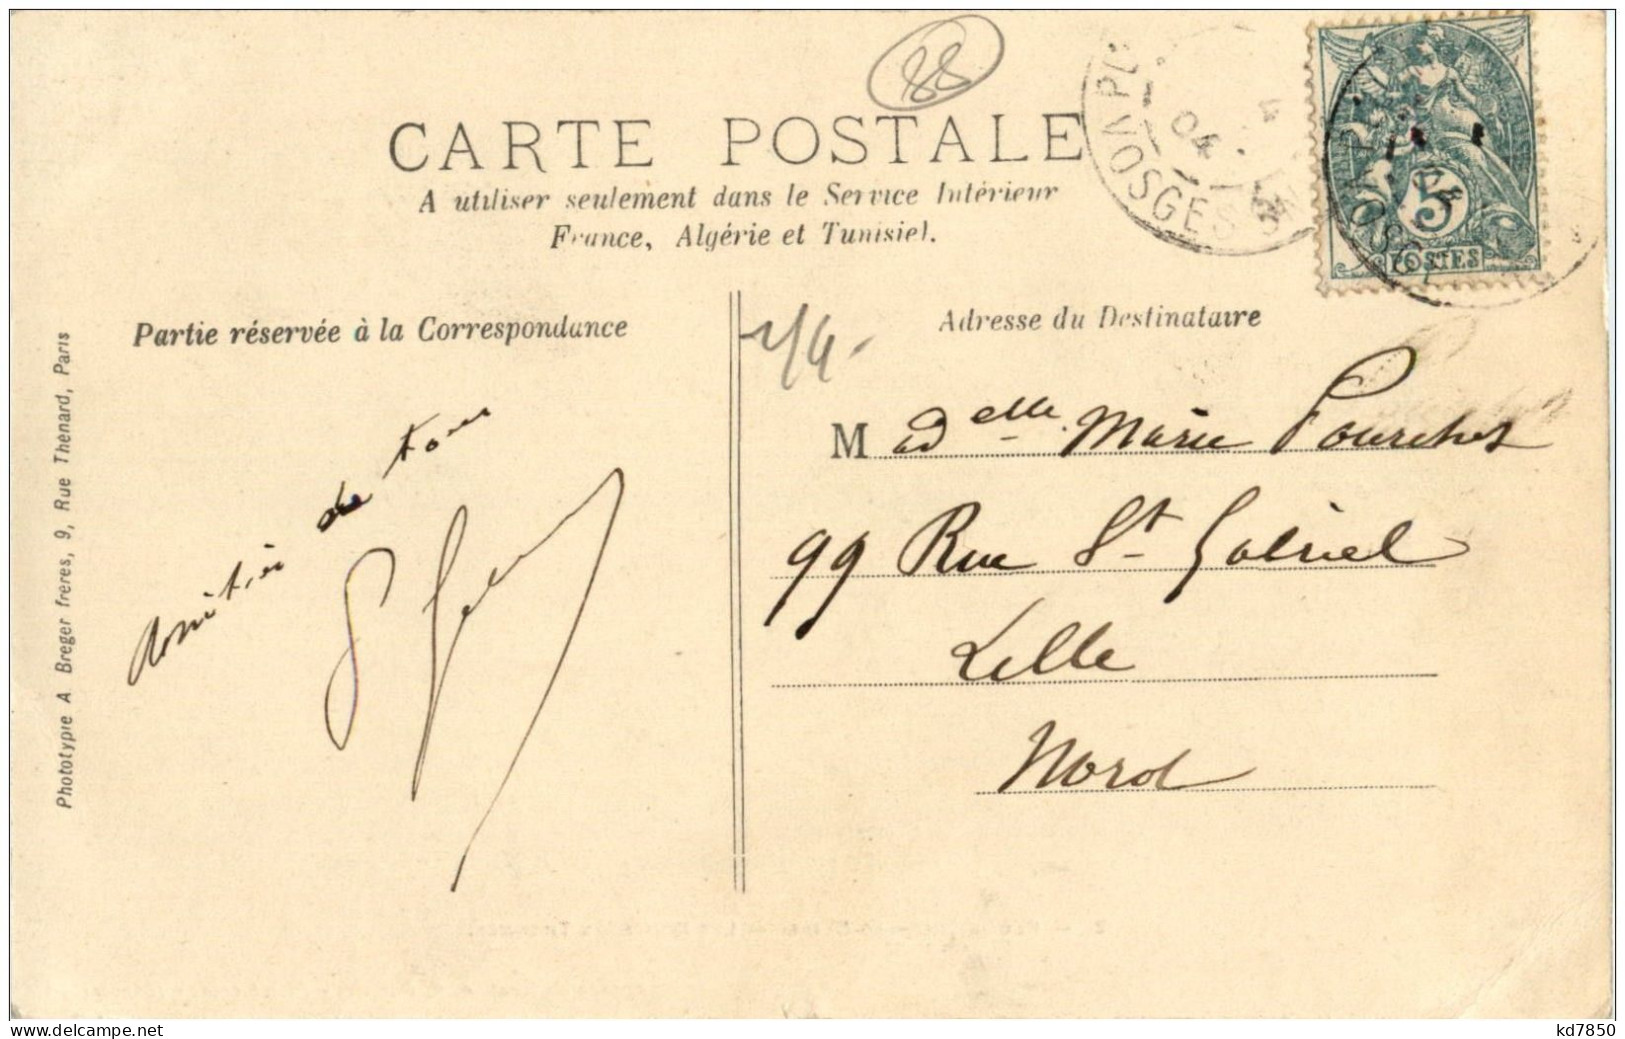 88
CARTE POSTALE
A utiliser seulement dans le Service Intérieur
France, Algérie et Tunisie.
VOSGES
04
5
POSTES
Partie réservée à la Correspondance
Amitiés de tous
Adresse du Destinataire
Madelle. Marie Pourchet
99 Rue St Gabriel
Lille
Nord
Phototypie A Breger frères, 9, Rue Thénard, Paris
kd7850
www.delcampe.net